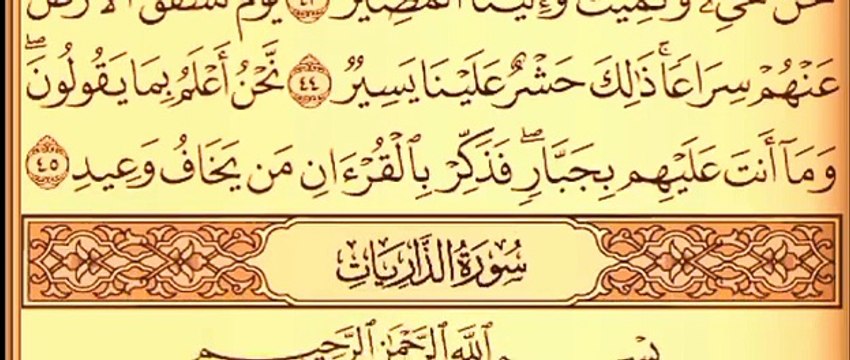 نَحْنُ نُحْيِۦ وَنُمِيتُ وَإِلَيْنَا ٱلْمَصِيرُ ٤٣ يَوْمَ تَشَقَّقُ ٱلْأَرْضُ
عَنْهُمْ سِرَاعًا ۚ ذَٰلِكَ حَشْرٌ عَلَيْنَا يَسِيرٌ ٤٤ نَّحْنُ أَعْلَمُ بِمَا يَقُولُونَ ۖ
وَمَآ أَنتَ عَلَيْهِم بِجَبَّارٍ ۖ فَذَكِّرْ بِٱلْقُرْءَانِ مَن يَخَافُ وَعِيدِ ٤٥
سُورَةُ الذَّارِيَاتِ
بِسْمِ ٱللَّهِ ٱلرَّحْمَٰنِ ٱلرَّحِيمِ